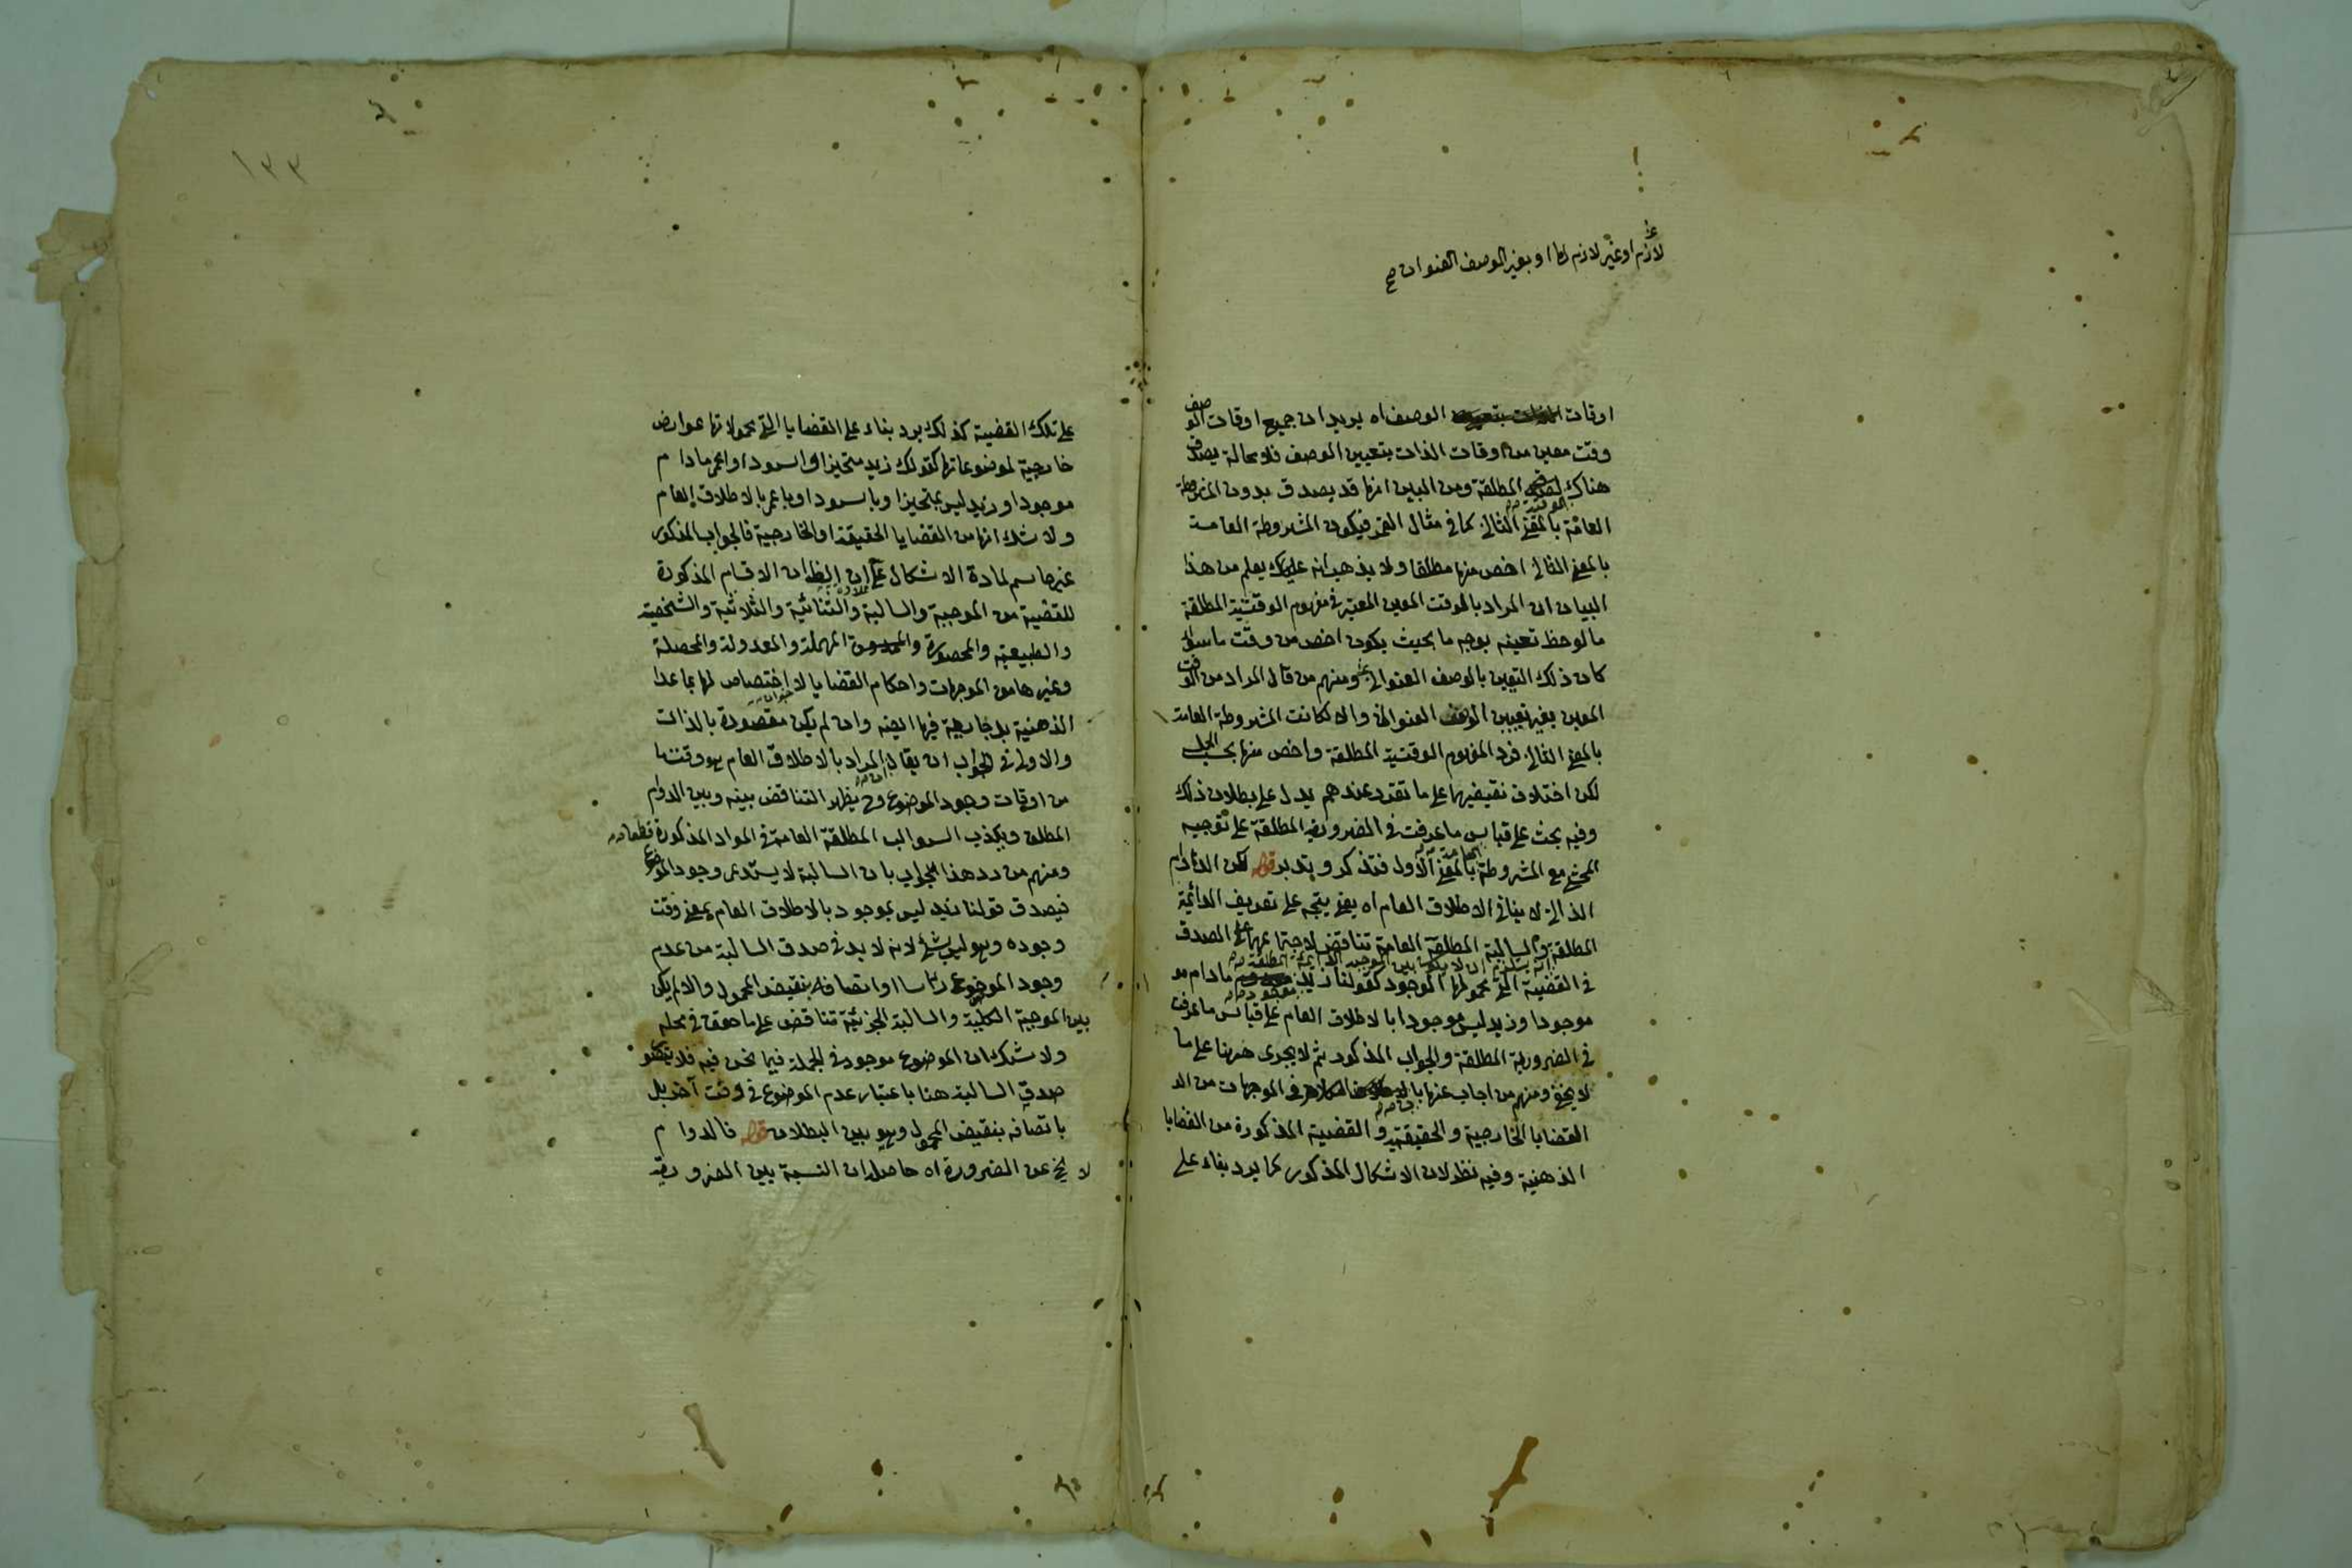 لازم او غير لازم لها او بغير الوصف العنوانى صح
اوقات الوصف اه يريد ان جميع اوقات الوصف
وقت معين من اوقات الذات بتعيين الوصف فلا محالة يصدق
هناك المطلقة ومن البين انها قد يصدق بدون المشروطة
العامة بالمعنى الثانى كما فى مثال القمر فيكون المشروطة العامة
بالمعنى الثانى اخص منها مطلقا ولا يذهب انه عليك يعلم من هذا
البيان ان المراد بالوقت المعين المعتبر فى مفهوم الوقتية المطلقة
ما لوحظ تعينه بوجه ما بحيث يكون اخص من وقت ما سواء
كان ذلك التعين بالوصف العنوانى ومنهم من قال المراد من الوقت
المعين بغير تعيين الوصف العنوانى والا لكانت المشروطة العامة
بالمعنى الثانى فرد المفهوم الوقتية المطلقة واخص منها بحسب الحمل
لكن اختلاف نقيضيهما على ما تقرر عندهم يدل على بطلان ذلك
وفيه بحث على قياس ما عرفت فى الضرورية المطلقة على توجيه
المحشى مع المشروطة العامة بالمعنى الاول فتذكر وتدبر قوله لكن الدوام
الذاتى لا ينافى الاطلاق العام اه يعنى يتجه على تعريف الدائمة
المطلقة انه يستلزم ان لا يكون بين الموجبة الدائمة المطلقة
والسالبة المطلقة العامة تناقض لاجتماعهما على الصدق
فى القضية التى محمولها الموجود كقولنا زيد موجود ما دام
موجودا وزيد ليس موجودا بالاطلاق العام على قياس ما عرفت
فى الضرورية المطلقة والجواب المذكور ثم لا يجرى ههنا على ما
لا يخفى ومنهم من اجاب عنها بان الكلام فى الموجهات من
القضايا الخارجية والحقيقية والقضية المذكورة من القضايا
الذهنية وفيه نظر لان الاشكال المذكور كما يرد بناء على
١٣٣
على تلك القضية كذلك يرد بناء على القضايا التى محمولاتها عوارض
خارجية لموضوعاتها كقولك زيد متحيز او اسود او احمر ما دام
موجودا وزيد ليس بمتحيز او باسود او باحمر بالاطلاق العام
ولا شك انها من القضايا الحقيقة او الخارجية فالجواب المذكور
غير حاسم لمادة الاشكال على ان الظاهر ان الاقسام المذكورة
للقضية من الموجبة والسالبة والثنائية والثلاثية والشخصية
والطبيعية والمحصورة والمهملة والمعدولة والمحصلة
وغيرها من الموجهات واحكام القضايا لا اختصاص لها بما عدا
الذهنية بل جارية فيها ايضا وان لم يكن مقصودة بالذات
والاولى فى الجواب ان يقال المراد بالاطلاق العام هو وقت ما
من اوقات وجود الموضوع وح يظهر التناقض بينه وبين الدوام
المطلق ويكذب السوالب المطلقة العامة فى المواد المذكورة قطعا
ومنهم من رد هذا الجواب بان السالبة لا يستدعى وجود الموضوع
فيصدق قولنا زيد ليس بموجود بالاطلاق العام بمعنى وقت
وجوده وهو ليس بشئ لانه لا بد فى صدق السالبة من عدم
وجود الموضوع راسا او اتصافه بنقيض المحمول والا لم يكن
بين الموجبة الكلية والسالبة الجزئية تناقض على ما حقق فى محله
ولا شك ان الموضوع موجود فى الجملة فيما نحن فيه فلا يتصور
صدق السالبة هنا باعتبار عدم الموضوع فى وقت آخر بل
باتصافه بنقيض المحمول وهو بين البطلان قوله فالدوام
لا يخ عن الضرورة اه حاصله ان النسبة بين الضرورية